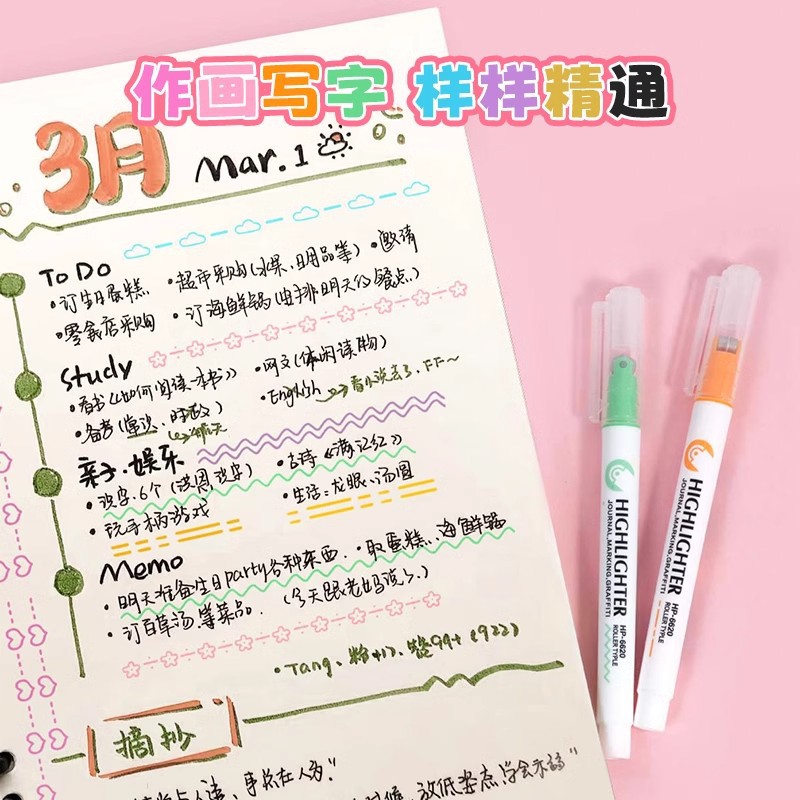 作画写字 样样精通
3月 Mar.1
To Do
·订生日蛋糕 ·超市采购(水果、日用品等) ·邀请
·零食店采购 ·订海鲜锅(安排明天的餐点)
Study
·看书《如何阅读一本书》 ·网文(休闲读物)
·备考(常识、时政) ·English 看小说去了,FF~
亲子·娱乐
·识字:6个(洪恩识字) ·古诗《满江红》
·玩手柄游戏 ·生活:龙眼、汤圆
Memo
·明天准备生日party各种东西. ·取蛋糕、海鲜锅
·订百草汤.等菜品. (今天跟老妈说了.)
·Tang、粉 赞99+(922)
摘抄
HIGHLIGHTER
JOURNAL,MARKING,GRAFFITI
HP-6620
ROLLER TYPLE
HIGHLIGHTER
JOURNAL,MARKING,GRAFFITI
HP-6620
ROLLER TYPLE